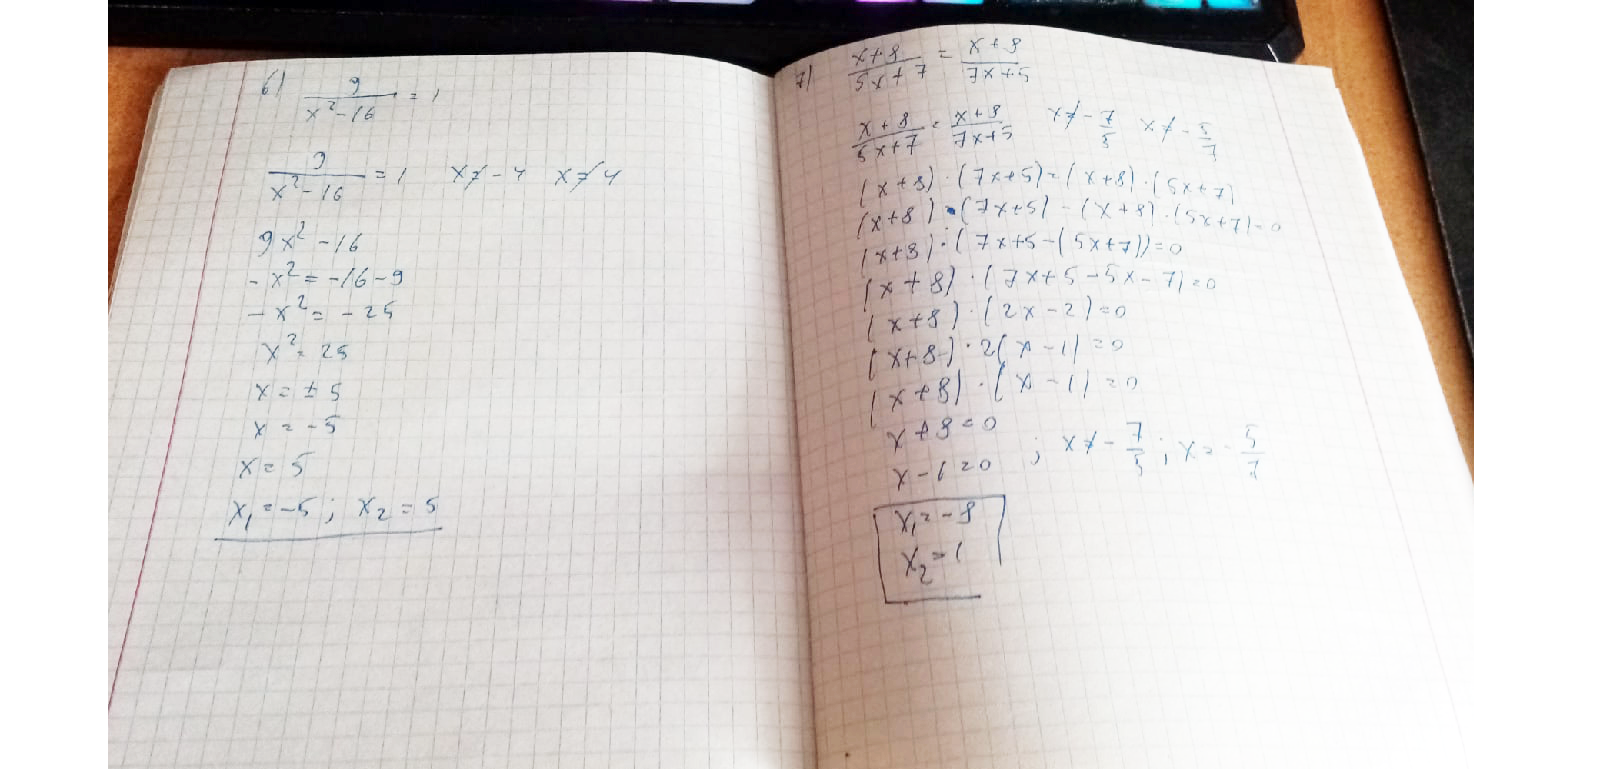 6) 9/(x²-16) = 1
9/(x²-16) = 1 x≠-4 x≠4
9x²-16
-x²=-16-9
-x²=-25
x²=25
x=±5
x=-5
x=5
x₁=-5; x₂=5
7) (x+8)/(5x+7) = (x+8)/(7x+5)
(x+8)/(5x+7) = (x+8)/(7x+5) x≠-7/5 x≠-5/7
(x+8)·(7x+5)=(x+8)·(5x+7)
(x+8)·(7x+5)-(x+8)·(5x+7)=0
(x+8)·(7x+5-(5x+7))=0
(x+8)·(7x+5-5x-7)=0
(x+8)·(2x-2)=0
(x+8)·2(x-1)=0
(x+8)·(x-1)=0
x+8=0
x-1=0 ; x≠-7/5; x=-5/7
x₁=-8
x₂=1